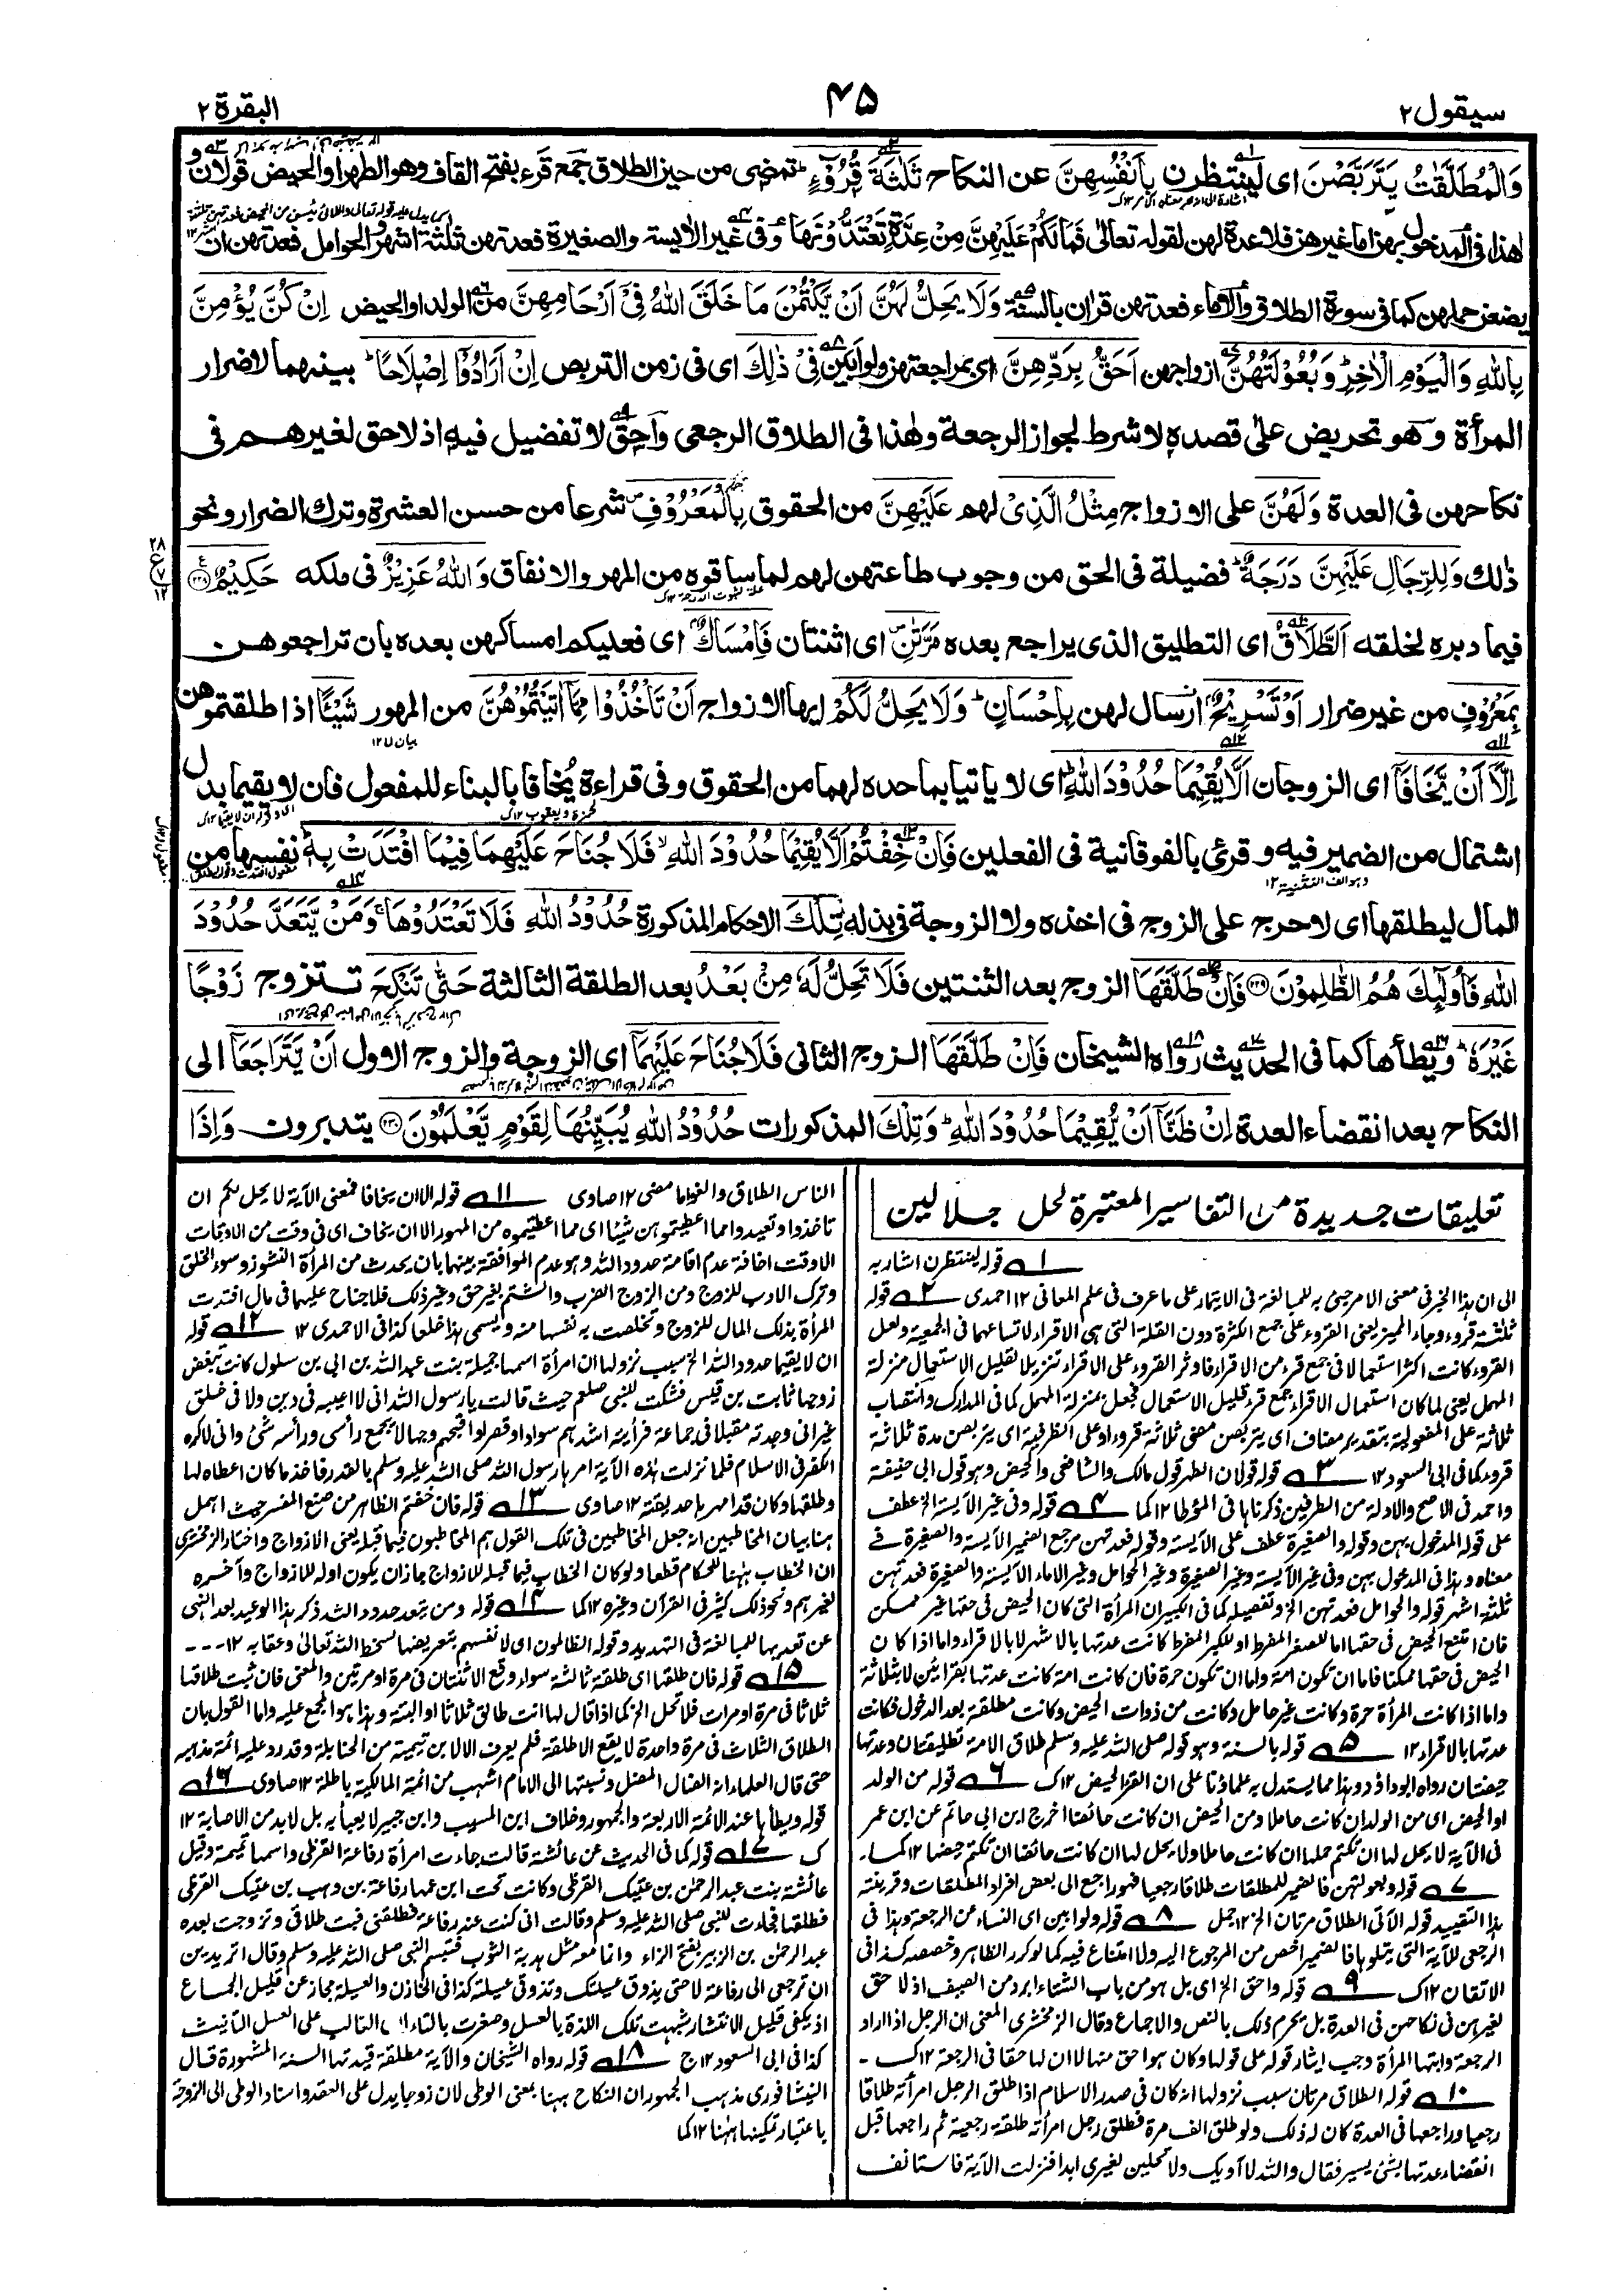 سيقول٢
٤٥
البقرة ٢
وَالْمُطَلَّقٰتُ يَتَرَبَّصْنَ اى لينتظرن بِاَنْفُسِهِنَّ عن النكاح ثَلٰثَةَ قُرُوْٓءٍ تمضى من حين الطلاق جمع قرء بفتح القاف وهو الطهر او الحيض قولان و
هذا فى المدخول بهن اما غيرهن فلا عدة لهن لقوله تعالى فَمَالَكُمْ عَلَيْهِنَّ مِنْ عِدَّةٍ تَعْتَدُّوْنَهَا وفى غير الآيسة والصغيرة فعدتهن ثلثة اشهر والحوامل فعدتهن ان
يضعن حملهن كما فى سورة الطلاق والاماء فعدتهن قران بالسنة وَلَا يَحِلُّ لَهُنَّ اَنْ يَّكْتُمْنَ مَا خَلَقَ اللّٰهُ فِيْٓ اَرْحَامِهِنَّ من الولد او الحيض اِنْ كُنَّ يُؤْمِنَّ
بِاللّٰهِ وَالْيَوْمِ الْاٰخِرِ وَبُعُوْلَتُهُنَّ ازواجهن اَحَقُّ بِرَدِّهِنَّ اى بمراجعتهن ولو ابين فِيْ ذٰلِكَ اى فى زمن التربص اِنْ اَرَادُوْٓا اِصْلَاحًا بينهما لاضرار
المرأة وهو تحريض على قصده لا شرط لجواز الرجعة وهذا فى الطلاق الرجعى واحق لا تفضيل فيه اذ لا حق لغيرهم فى
نكاحهن فى العدة وَلَهُنَّ على الازواج مِثْلُ الَّذِيْ لهم عَلَيْهِنَّ من الحقوق بِالْمَعْرُوْفِ شرعا من حسن العشرة وترك الضرار ونحو
ذلك وَلِلرِّجَالِ عَلَيْهِنَّ دَرَجَةٌ فضيلة فى الحق من وجوب طاعتهن لهم لما ساقوه من المهر والانفاق وَاللّٰهُ عَزِيْزٌ فى ملكه حَكِيْمٌ ٢٢٨
فيما دبره لخلقه اَلطَّلَاقُ اى التطليق الذى يراجع بعده مَرَّتٰنِ اى اثنتان فَاِمْسَاكٌ اى فعليكم امساكهن بعده بان تراجعوهن
بِمَعْرُوْفٍ من غير ضرار اَوْ تَسْرِيْحٌ ارسال لهن بِاِحْسَانٍ وَلَا يَحِلُّ لَكُمْ ايها الازواج اَنْ تَاْخُذُوْا مِمَّآ اٰتَيْتُمُوْهُنَّ من المهور شَيْئًا اذا طلقتموهن
اِلَّآ اَنْ يَّخَافَآ اى الزوجان اَلَّا يُقِيْمَا حُدُوْدَ اللّٰهِ اى لا ياتيا بما حده لهما من الحقوق وفى قراءة يُخافا بالبناء للمفعول فان لا يقيما بدل
اشتمال من الضمير فيه وقرئ بالفوقانية فى الفعلين فَاِنْ خِفْتُمْ اَلَّا يُقِيْمَا حُدُوْدَ اللّٰهِ فَلَا جُنَاحَ عَلَيْهِمَا فِيْمَا افْتَدَتْ بِهٖ نفسها من
المال ليطلقها اى لا حرج على الزوج فى اخذه ولا الزوجة فى بذله تِلْكَ الاحكام المذكورة حُدُوْدُ اللّٰهِ فَلَا تَعْتَدُوْهَا وَمَنْ يَّتَعَدَّ حُدُوْدَ
اللّٰهِ فَاُولٰٓئِكَ هُمُ الظّٰلِمُوْنَ ٢٢٩ فَاِنْ طَلَّقَهَا الزوج بعد الثنتين فَلَا تَحِلُّ لَهٗ مِنْ بَعْدُ بعد الطلقة الثالثة حَتّٰى تَنْكِحَ تتزوج زَوْجًا
غَيْرَهٗ ويطأها كما فى الحديث رواه الشيخان فَاِنْ طَلَّقَهَا الزوج الثانى فَلَا جُنَاحَ عَلَيْهِمَآ اى الزوجة والزوج الاول اَنْ يَّتَرَاجَعَآ الى
النكاح بعد انقضاء العدة اِنْ ظَنَّآ اَنْ يُّقِيْمَا حُدُوْدَ اللّٰهِ وَتِلْكَ المذكورات حُدُوْدُ اللّٰهِ يُبَيِّنُهَا لِقَوْمٍ يَّعْلَمُوْنَ ٢٣٠ يتدبرون وَاِذَا
تعليقات جديدة من التفاسير المعتبرة لحل جلالين
١ قوله لينتظرن اشار به
الى ان هذا الخبر فى معنى الامر جئ به للمبالغة فى الايتمار على ما عرف فى علم المعانى ١٢ احمدى ٢ قوله
ثلثة قروء وجاء المميز يعنى القروء على جمع الكثرة دون القلة التى هى الاقراء لاتساعهما فى الجمعية ولعل
القروء كانت اكثر استعمالا فى جمع قرء من الاقراء فاوثر القروء على الاقراء تنزيلا لقليل الاستعمال منزلة
المهمل يعنى لما كان استعمال الاقراء جمع قرء قليل الاستعمال فجعل بمنزلة المهمل كما فى المدارك وانتصاب
ثلاثة على المفعولية بتقدير مضاف اى يتربصن مضى ثلاثة قروء او على الظرفية اى يتربصن مدة ثلاثة
قروء كما فى ابى السعود ١٢ ٣ قوله قولان الطهر قول مالك والشافعى والحيض وهو قول ابى حنيفة
واحمد فى الاصح والادلة من الطرفين ذكرناها فى المؤطا ١٢ كما ٤ قوله وفى غير الآيسة الخ عطف
على قوله المدخول بهن وقوله والصغيرة عطف على الآيسة وقوله فعدتهن مرجع الضمير الآيسة والصغيرة فـ
معناه وهذا فى المدخول بهن وفى غير الآيسة وغير الصغيرة وغير الحوامل وغير الاماء الآيسة والصغيرة فعدتهن
ثلثة اشهر قوله والحوامل فعدتهن الخ وتفصيله كما فى الكبير ان المرأة التى كان الحيض فى حقها غير ممكن
فان امتنع الحيض فى حقها اما للصغر المفرط او للكبر المفرط كانت عدتها بالاشهر لا بالاقراء واما اذا كان
الحيض فى حقها ممكنا فاما ان تكون امة واما ان تكون حرة فان كانت امة كانت عدتها بقرائين لا بثلاثة
واما اذا كانت المرأة حرة وكانت غير حامل وكانت من ذوات الحيض وكانت مطلقة بعد الدخول فكانت
عدتها بالاقراء ١٢ ٥ قوله بالسنة وهو قوله صلى الله عليه وسلم طلاق الامة تطليقتان وعدتها
حيضتان رواه ابوداؤد وهذا مما يستدل به علماؤنا على ان القرء الحيض ١٢ ك ٦ قوله من الولد
او الحيض اى من الولد ان كانت حاملا ومن الحيض ان كانت حائضا اخرج ابن ابى حاتم عن ابن عمر
فى الآية لا يحل لها ان تكتم حملها ان كانت حاملا ولا يحل لها ان كانت حائضا ان تكتم حيضها ١٢ كما
٧ قوله وبعولتهن فالضمير للمطلقات طلاقا رجعيا فهو راجع الى بعض افراد المطلقات وقرينة
هذا التقييد قوله الآتى الطلاق مرتان الخ ١٢ جمل ٨ قوله ولو ابين اى النساء عن الرجعة وهذا فى
الرجعى للآية التى يتلوها فالضمير اخص من المرجوع اليه ولا امتناع فيه كما لو كرر الظاهر وخصصه كذا فى
الاتقان ١٢ ك ٩ قوله واحق الخ اى بل هو من باب الشتاء ابرد من الصيف اذ لا حق
لغيرهن فى نكاحهن فى العدة بل يحرم ذلك بالنص والاجماع وقال الزمخشرى المعنى ان الرجل اذا اراد
الرجعة وابتها المرأة وجب ايثار قوله على قولها وكان هو احق منها لا ان لها حقا فى الرجعة ١٢ ك
١٠ قوله الطلاق مرتان سبب نزولها انه كان فى صدر الاسلام اذا طلق الرجل امرأته طلاقا
رجعيا وراجعها فى العدة كان له ذلك ولو طلق الف مرة فطلق رجل امرأته طلقة رجعية ثم راجعها قبل
انقضاء عدتها بشئ يسير فقال والله لا آويك ولا تحلين لغيرى ابدا فنزلت الآية فاستانف
الناس الطلاق والغواما مضى ١٢ صاوى ١١ قوله الا ان يخافا فمعنى الآية لا يحل لكم ان
تاخذوا وتعيدوا مما اعطيتموهن شيئا اى مما اعطيتموه من المهور الا ان يخاف اى فى وقت من الاوقات
الا وقت اخافة عدم اقامة حدود الله وهو عدم الموافقة بينهما بان يحدث من المرأة النشوز وسوء الخلق
وترك الادب للزوج ومن الزوج الضرب والشتم بغير حق وغير ذلك فلا جناح عليهما فى مال افتدت
المرأة بذلك المال للزوج وتخلصت به نفسها منه ويسمى هذا خلعا كذا فى الاحمدى ١٢ ١٢ قوله
ان لا يقيما حدود الله الخ سبب نزولها ان امرأة اسمها جميلة بنت عبد الله بن ابى بن سلول كانت تبغض
زوجها ثابت بن قيس فشكت للنبى صلعم حيث قالت يا رسول الله انى لا اعيبه فى دين ولا فى خلق
غير انى وجدته مقبلا فى جماعة فرأيته اشدهم سوادا وقصرا واقبحهم وجها لا يجمع رأسى ورأسه شئ وانى لاكره
الكفر فى الاسلام فلما نزلت هذه الآية امر بها رسول الله صلى الله عليه وسلم بالعذر فاخذ ما كان اعطاه لها
وطلقها وكان قد امهرها حديقة ١٢ صاوى ١٣ قوله فان خفتم الظاهر من صنع المفسر حيث اهمل
هنا بيان المخاطبين انه جعل المخاطبين فى تلك القول هم المخاطبون فيما قبله يعنى الازواج واختار الزمخشرى
ان الخطاب ههنا للحكام قطعا ولو كان الخطاب فيما قبله للازواج جاز ان يكون اوله للازواج وآخره
لغيرهم ونحو ذلك كثير فى القرآن وغيره ١٢ كما ١٤ قوله ومن يتعد حدود الله ذكر هذا الوعيد بعد النهى
عن تعديها للمبالغة فى التهديد وقوله الظالمون اى لانفسهم بتعريضها لسخط الله تعالى وعقابه ١٢
١٥ قوله فان طلقها اى طلقة ثالثة سواء وقع الاثنتان فى مرة او مرتين والمعنى فان ثبت طلاقها
ثلاثا فى مرة او مرات فلا تحل الخ كما اذا قال لها انت طالق ثلاثا او البتة وهذا هو المجمع عليه واما القول بان
الطلاق الثلاث فى مرة واحدة لا يقع الا طلقة فلم يعرف الا لابن تيمية من الحنابلة وقد رد عليه ائمة مذهبه
حتى قال العلماء انه الضال المضل ونسبتها الى الامام اشهب من ائمة المالكية باطلة ١٢ صاوى ١٦
قوله ويطأها عند الائمة الاربعة والجمهور وخلاف ابن المسيب وابن جبير لا يعبأ به بل لا بد من الاصابة ١٢
ك ١٧ قوله كما فى الحديث عن عائشة قالت جاءت امرأة رفاعة القرظى واسمها تميمة وقيل
عائشة بنت عبد الرحمن بن عتيك القرظى وكانت تحت ابن عمها رفاعة بن وهب بن عتيك القرظى
فطلقها فجاءت للنبى صلى الله عليه وسلم وقالت انى كنت عند رفاعة فطلقنى فبت طلاقى وتزوجت بعده
عبد الرحمن بن الزبير بفتح الزاء وانما معه مثل هدبة الثوب فتبسم النبى صلى الله عليه وسلم وقال اتريدين
ان ترجعى الى رفاعة لا حتى يذوق عسيلتك وتذوقى عسيلته كذا فى الخازن والعسيلة مجاز عن قليل الجماع
اذ يكفى قليل الانتشار شبهت تلك اللذة بالعسل وصغرت بالتاء لان الغالب على العسل التأنيث
كذا فى ابى السعود ١٢ ج ١٨ قوله رواه الشيخان والآية مطلقة قيدتها السنة المشهورة قال
النيشافورى مذهب الجمهور ان النكاح ههنا بمعنى الوطى لان زوجا يدل على العقد واسناد الوطى الى الزوجة
باعتبار تمكينها ههنا ١٢ كما